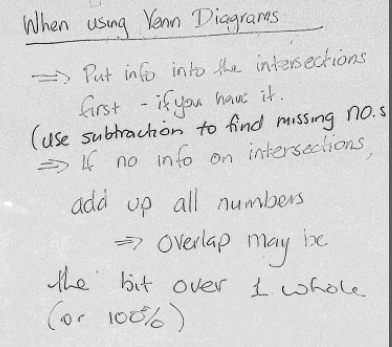 When using Venn Diagrams
⇒ Put info into the intersections
first - if you have it.
(use subtraction to find missing no.s
⇒ If no info on intersections,
add up all numbers
⇒ overlap may be
the bit over 1 whole
(or 100%)